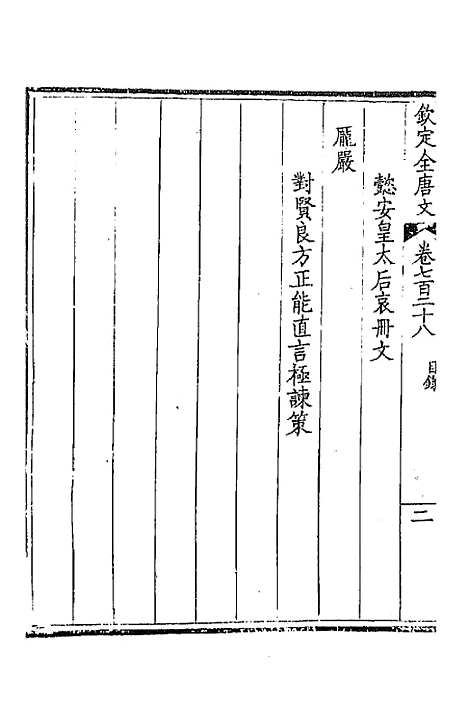 欽定全唐文 卷七百二十八 目錄 二
懿安皇太后哀冊文
龎嚴
對賢良方正能直言極諫策